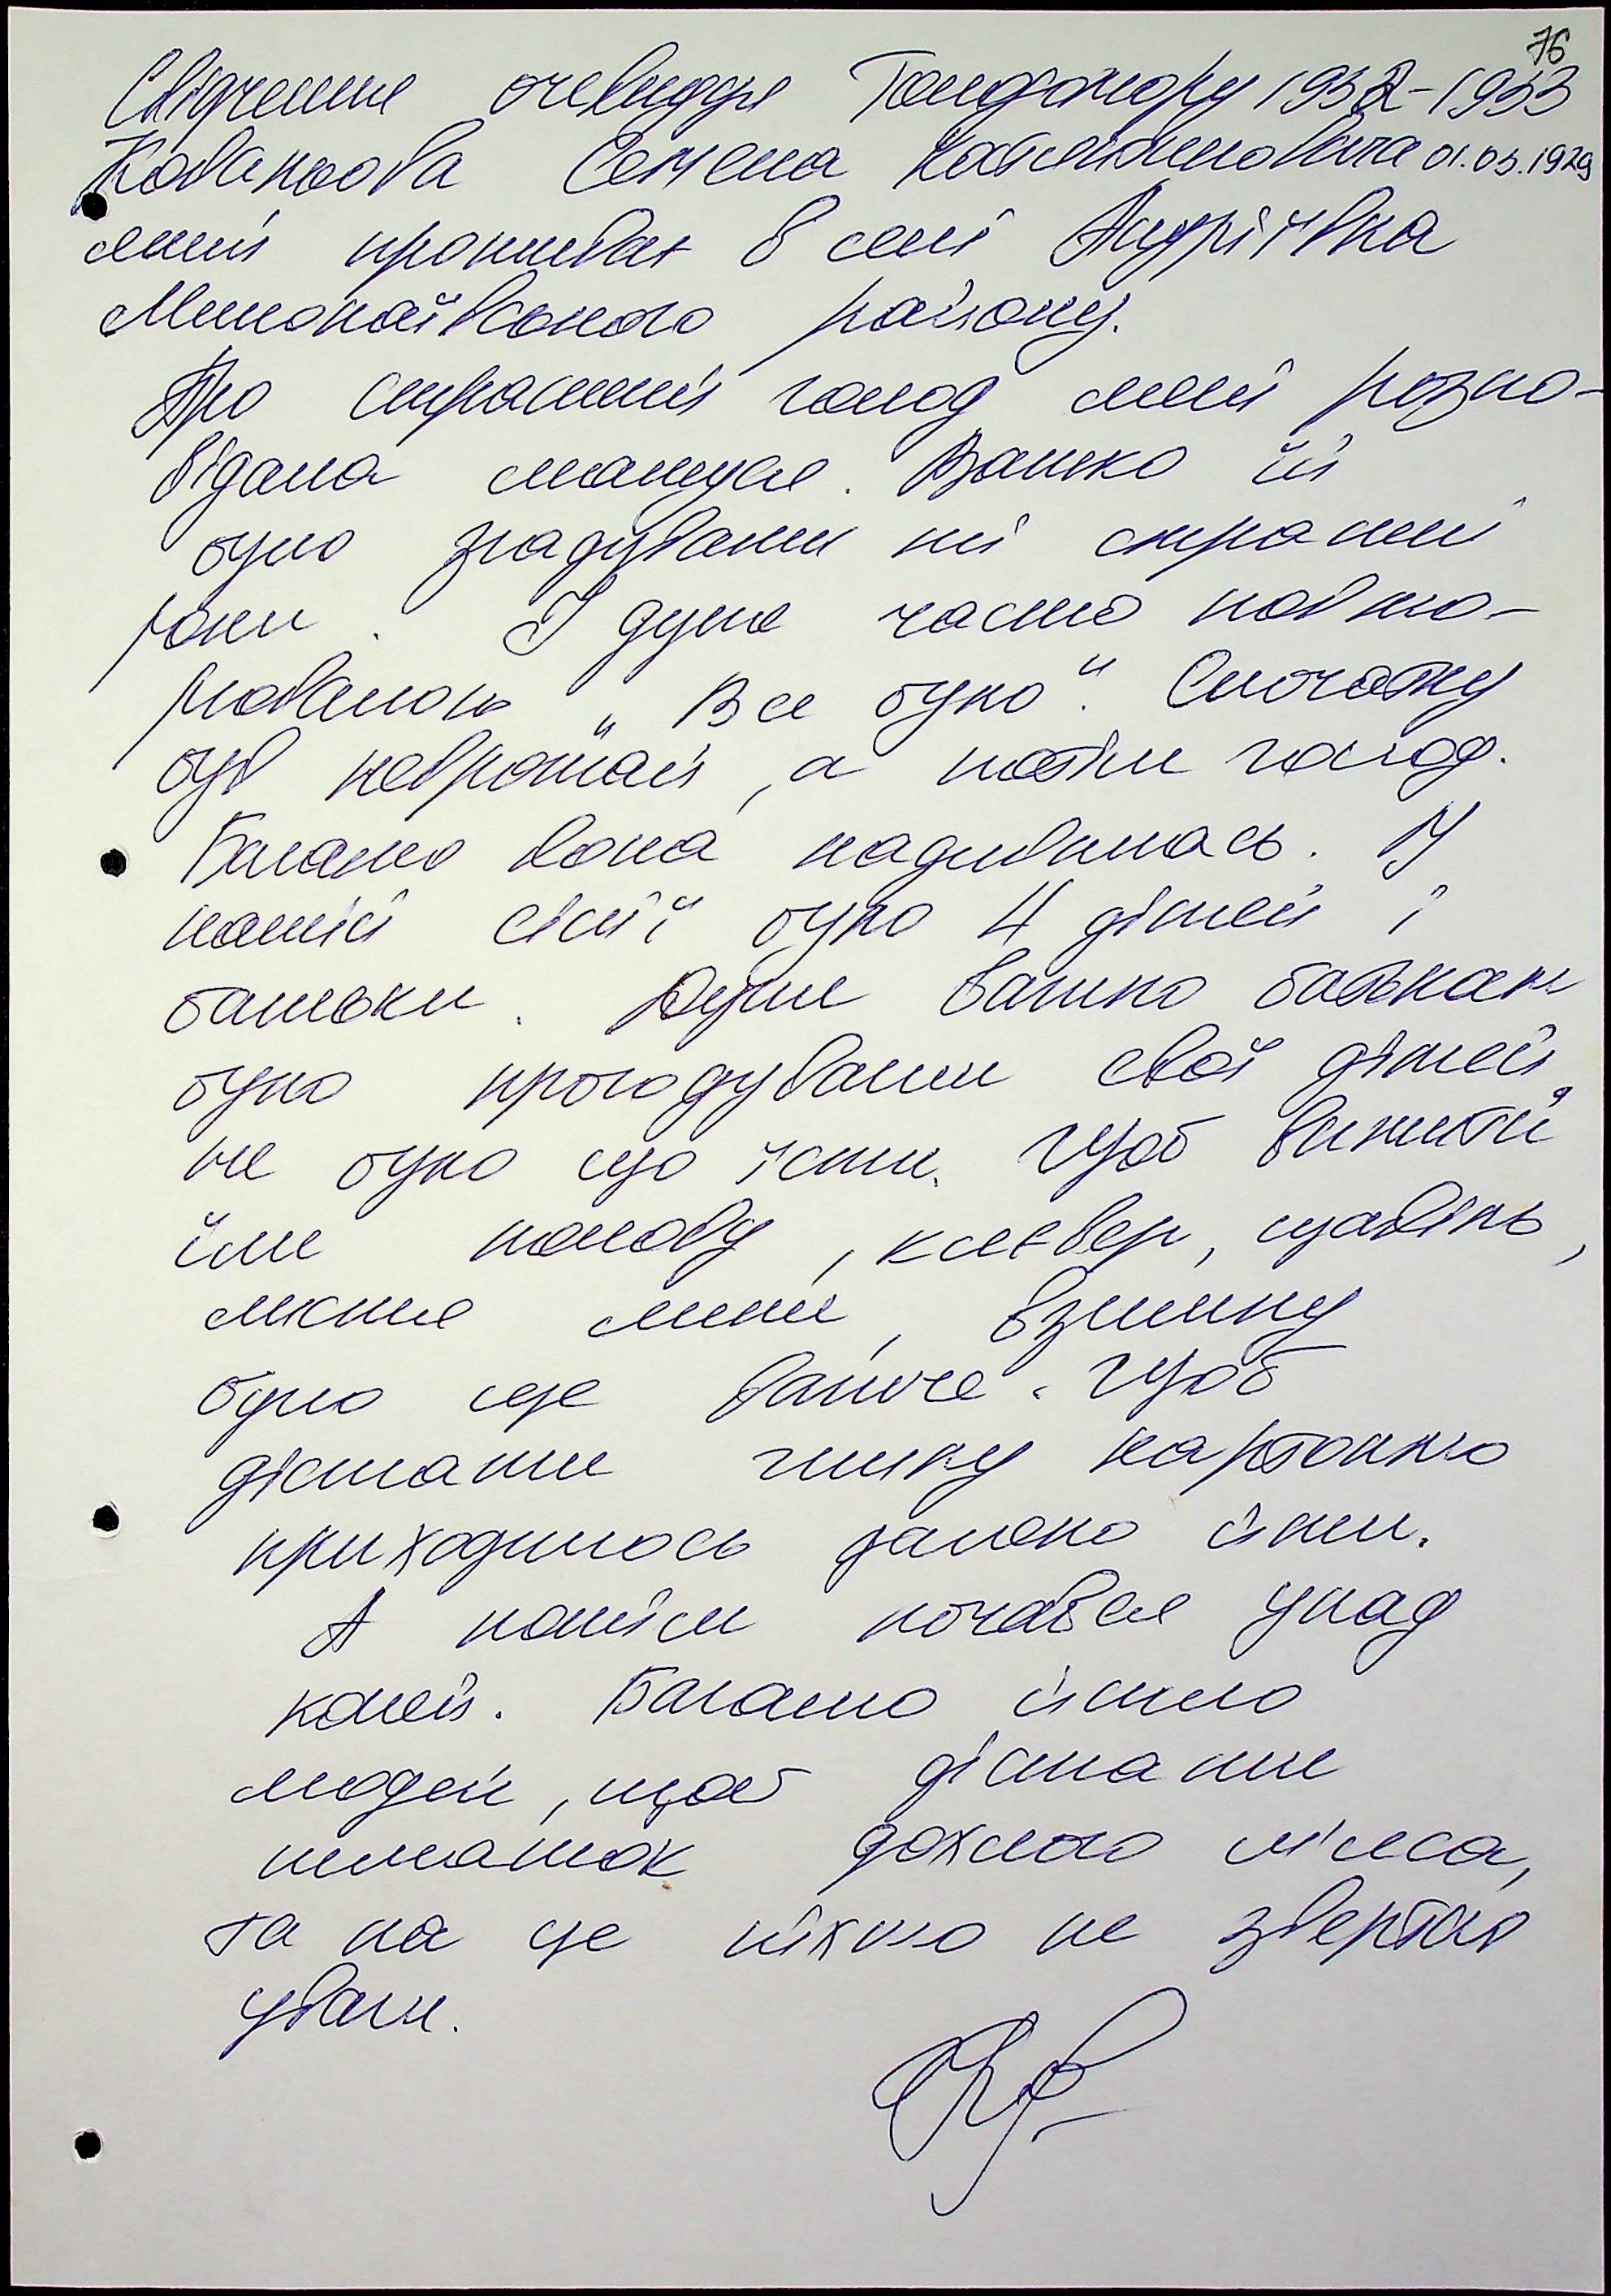 76
Свідчення очевидця Голодомору 1932-1933
Ковальова Семена 01.03.1929
який проживає в селі Андріївка
Миколаївського району.
Про страшний голод мені розпо-
відала матуся. Важко їй
було згадувати ті страшні
роки. І дуже часто повто-
рювалось „Все було". Спочатку
був неврожай, а потім голод.
Багато вона надивилась. У
нашій сім'ї було 4 дітей і
батьки. Дуже важко батькам
було прогодувати свої дітей,
не було що їсти. Щоб вижити
їли полову, клевер, щавель,
листя липи, взимку
було ще важче. Щоб
дістати гнилу картоплю
приходилось далеко йти.
А потім почався упад
коней. Багато йшло
людей, щоб дістати
шматок дохлого м'яса,
та на це ніхто не звертав
уваги.